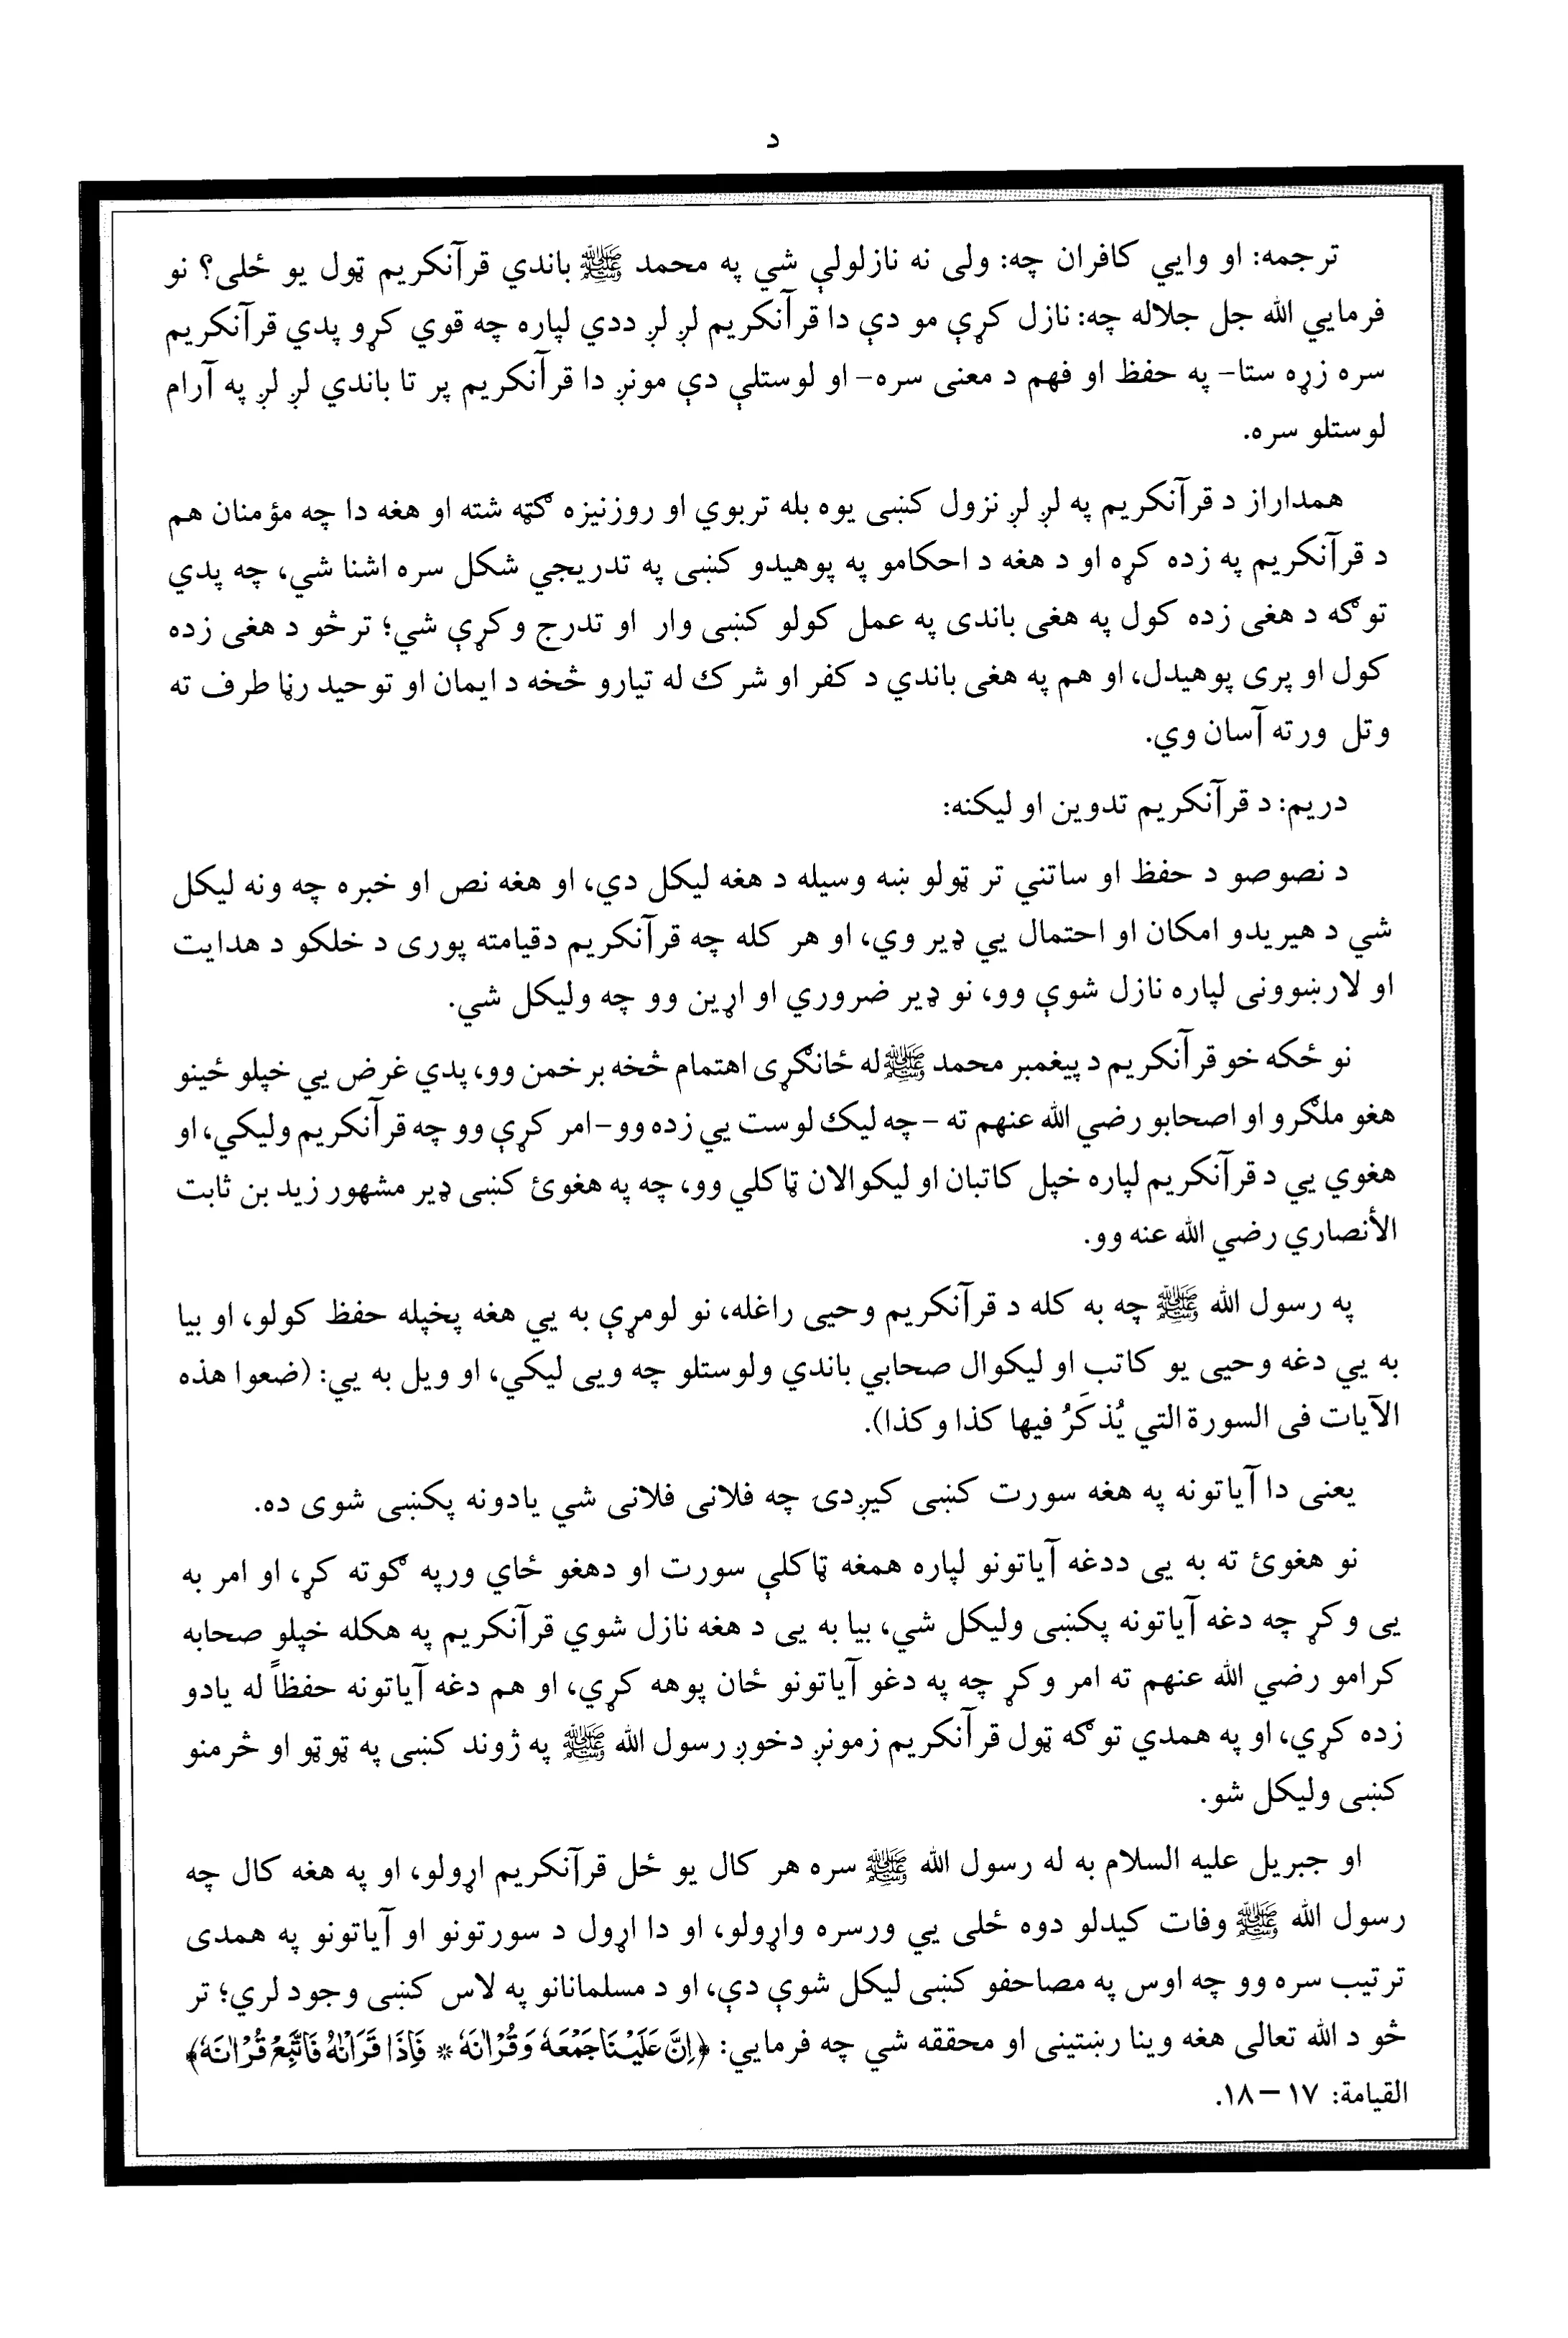 د
ترجمه: او وايي كافران چه: ولى نه نازلولې شي په محمد ﷺ باندي قرآنكريم ټول يو ځلى؟ نو
فرمايي الله جل جلاله چه: نازل كړې مو دې دا قرآنكريم لږ لږ ددي لپاره چه قوي كړو پدي قرآنكريم
سره زړه ستا- په حفظ او فهم د معنى سره- او لوستلې دې مونږ دا قرآنكريم پر تا باندي لږ لږ په آرام
لوستلو سره.
همداراز د قرآنكريم په لږ لږ نزول كښى يوه بله تربوي او روزنيزه ګټه شته او هغه دا چه مؤمنان هم
د قرآنكريم په زده كړه او د هغه د احكامو په پوهيدو كښى په تدريجي شكل سره اشنا شي، چه پدي
توګه د هغى زده كول په هغى باندى په عمل كولو كښى وار او تدرج وكړې شي؛ ترڅو د هغى زده
كول او پرى پوهيدل، او هم په هغى باندي د كفر او شرك له تيارو څخه د ايمان او توحيد رڼا طرف ته
وتل ورته آسان وي.
دريم: د قرآنكريم تدوين او ليكنه:
د نصوصو د حفظ او ساتني تر ټولو ښه وسيله د هغه ليكل دي، او هغه نص او خبره چه ونه ليكل
شي د هيريدو امكان او احتمال يي ډير وي، او هر كله چه قرآنكريم دقيامته پورى د خلكو د هدايت
او لارښوونى لپاره نازل شوې وو، نو ډير ضروري او اړين وو چه وليكل شي.
نو ځكه خو قرآنكريم د پيغمبر محمد ﷺ له ځانګړى اهتمام څخه برخمن وو، پدي غرض يي خپلو ځينو
هغو ملګرو او اصحابو رضي الله عنهم ته -چه ليك لوست يي زده وو- امر كړې وو چه قرآنكريم وليكي، او
هغوي يي د قرآنكريم لپاره خپل كاتبان او ليكوالان ټاكلي وو، چه په هغوئ كښى ډير مشهور زيد بن ثابت
الأنصاري رضي الله عنه وو.
په رسول الله ﷺ چه به كله د قرآنكريم وحيى راغله، نو لومړې به يي هغه پخپله حفظ كولو، او بيا
به يي دغه وحيى يو كاتب او ليكوال صحابي باندي ولوستلو چه ويى ليكي، او ويل به يي: (ضعوا هذه
الآيات فى السورة التي يُذكَرُ فيها كذا وكذا).
يعنى دا آياتونه په هغه سورت كښى كيږدئ چه فلانى فلانى شي يادونه پكښى شوى ده.
نو هغوئ ته به يى ددغه آياتونو لپاره همغه ټاكلې سورت او دهغو ځاي ورپه ګوته كړ، او امر به
يى وكړ چه دغه آياتونه پكښى وليكل شي، بيا به يى د هغه نازل شوي قرآنكريم په هكله خپلو صحابه
كرامو رضي الله عنهم ته امر وكړ چه په دغو آياتونو ځان پوهه كړي، او هم دغه آياتونه حفظاً له يادو
زده كړي، او په همدي توګه ټول قرآنكريم زمونږ دخوږ رسول الله ﷺ په ژوند كښى په ټوټو او څرمنو
كښى وليكل شو.
او جبريل عليه السلام به له رسول الله ﷺ سره هر كال يو ځل قرآنكريم اړولو، او په هغه كال چه
رسول الله ﷺ وفات كيدلو دوه ځلى يي ورسره واړولو، او دا اړول د سورتونو او آياتونو په همدى
ترتيب سره وو چه اوس په مصاحفو كښى ليكل شوې دې، او د مسلمانانو په لاس كښى وجود لري؛ تر
څو د الله تعالى هغه وينا رښتينى او محققه شي چه فرمايي: ﴿اِنَّ عَلَيْنَا جَمْعَهٗ وَقُرْاٰنَهٗ * فَاِذَا قَرَاْنٰهُ فَاتَّبِعْ قُرْاٰنَهٗ﴾
القيامة: ١٧ – ١٨.